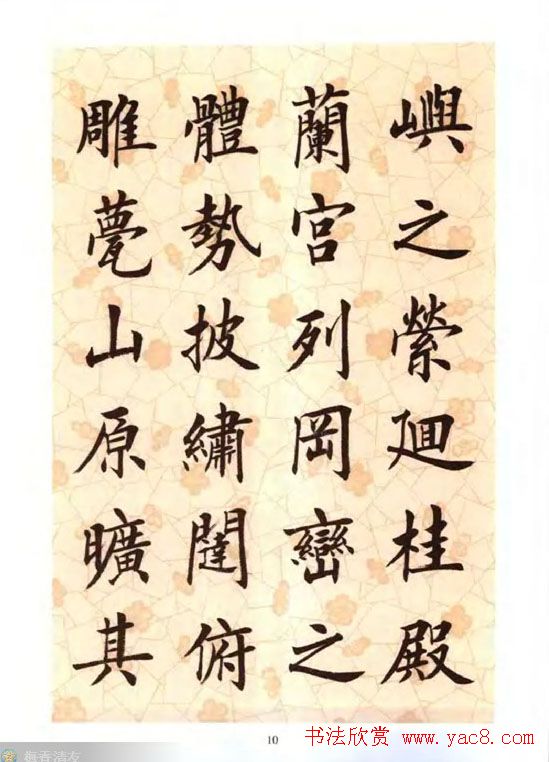 嶼之縈迴桂殿
蘭宮列岡巒之
體勢披繡闥俯
雕甍山原曠其
10
书法欣赏 www.yac8.com
梅香清友